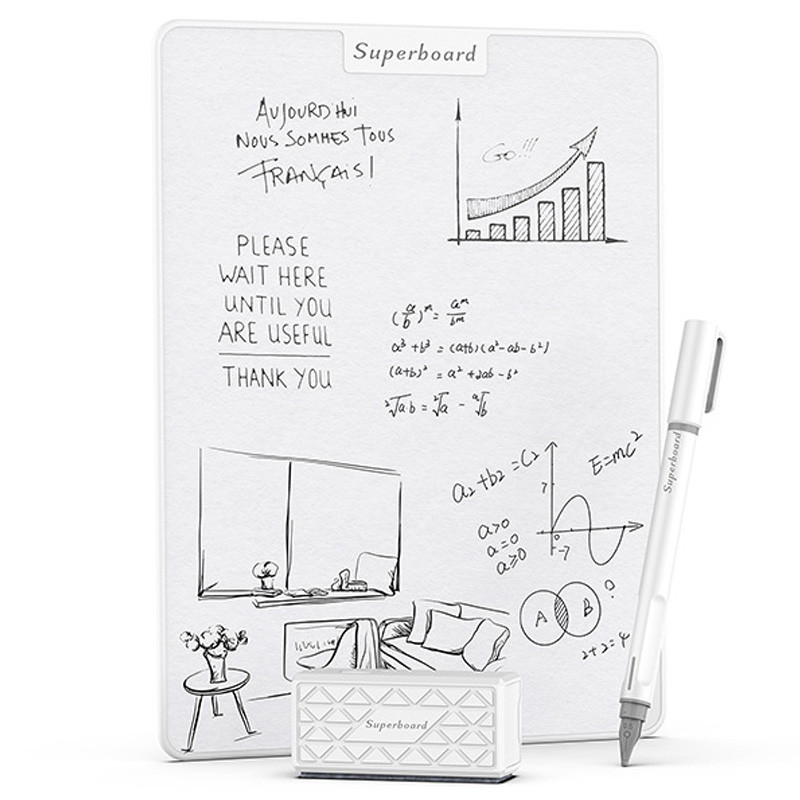 Superboard
AUJOURD'HUI
NOUS SOMMES TOUS
FRANÇAIS!
GO!!!
PLEASE
WAIT HERE
UNTIL YOU
ARE USEFUL
THANK YOU
(a/b)^m = a^m/b^m
a³ + b³ = (a+b)(a²-ab-b²)
(a+b)² = a² + 2ab - b²
²√a·b = ²√a - ᵃ√b
a2 + b2 = C2
E=mc²
a>0
a=0
a≥0
7
0
-7
A B ?
2+2=4
Superboard
Superboard